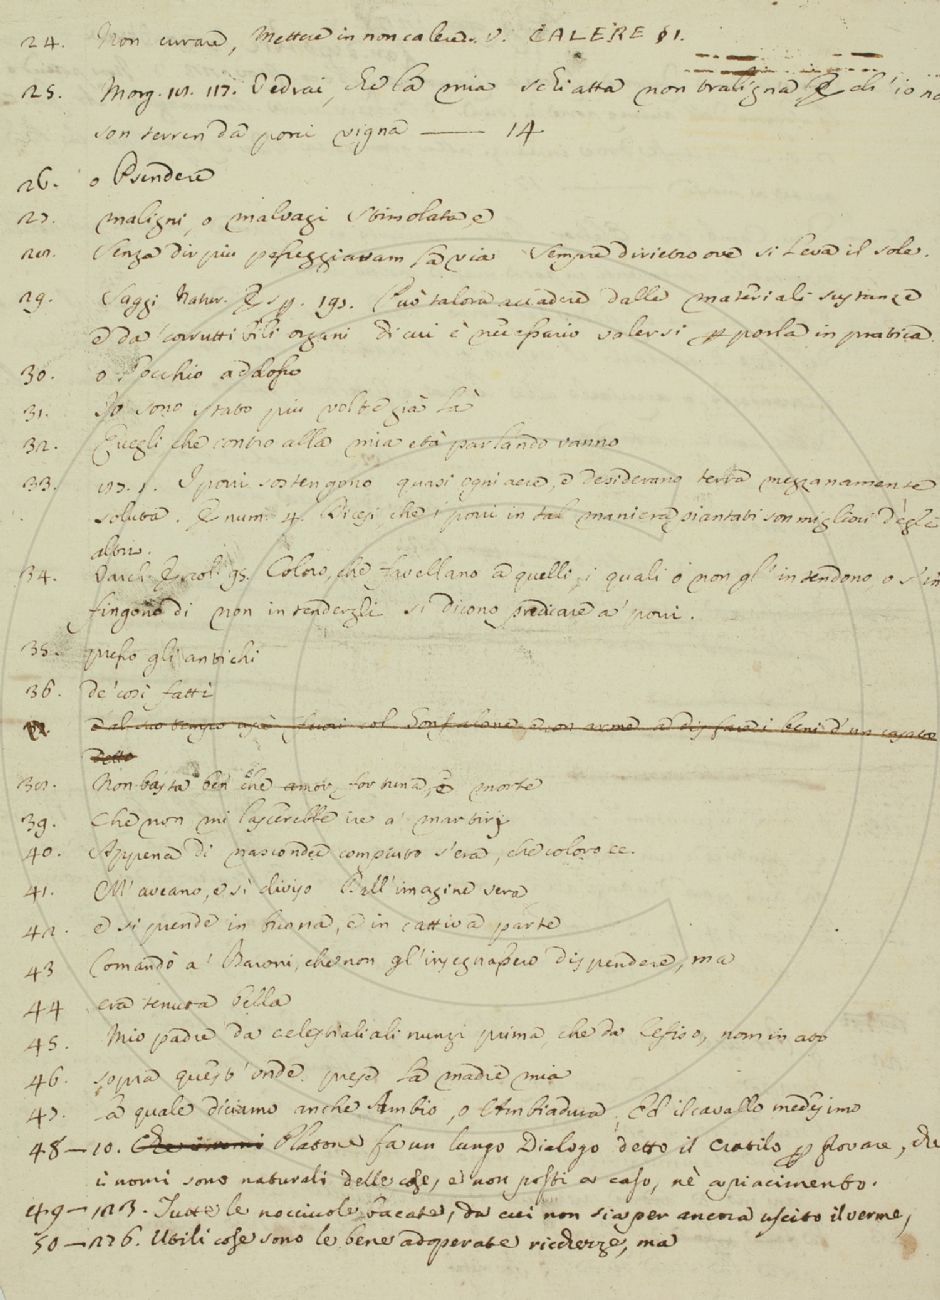 24. Non curare, Mettere in non calere. V. CALERE §1.
25. Morg. 18. 117. Vedrai, che la mia schiatta non traligna E ch'io no
son terren da porvi vigna —— 14
26. o Psendere
27. maligni, o malvagi stimolata, e
28. Senza dir più peseggiavam la via Sempre dirietro ove si leva il sole.
29. Saggi Natur. Esp. 197. Può talora accadere dalle materiali sustanze
e da' corruttibili organi di cui è necessario valersi per porla in pratica.
30. o l'occhio addosso
31. Io sono stato più volte già là
32. Quegli che contro alla mia età parlando vanno
33. 187. 1. I porri sostengono quasi ogni aere, e desiderano terra mezzanamente
soluta. E num. 4. Dicesi che i porri in tal maniera piantati son migliori degli
altri.
34. Varch. Ercol. 95. Coloro, che favellano a quelli, i quali o non gl'intendono o s'in
fingono di non intendergli si dicono predicare a' porri.
35. presso gli antichi
36. de' così fatti
detto
38. Non basta ben che amor, fortuna, e morte
39. Che non mi lascerebbe ire a' martirj
40. Appena di nascondere compiuto s'era, che coloro ec.
41. M'aveano, e sì diviso Dall'imagine vera
42. e si prende in buona, e in cattiva parte
43 Comandò a' Baroni, che non gl'insegnassero dispendere, ma
44 era tenuta bella
45. Mio padre da celestialiali nunzi prima, che da Cefiso, nominato
46. sopra quest'onde prese la madre mia
47. la quale diciamo anche Ambio, o Ambiadura, Ed il cavallo medesimo
48 — 10. Che i nomi Platone fa un lungo Dialogo detto il Cratilo per provare, che
i nomi sono naturali delle cose, e non posti a caso, nè a piacimento.
49 — 123. Tutte le nocciuole bacate, da cui non sia per ancora uscito il verme,
50 — 276. Utili cose sono le bene adoperate ricchezze, ma